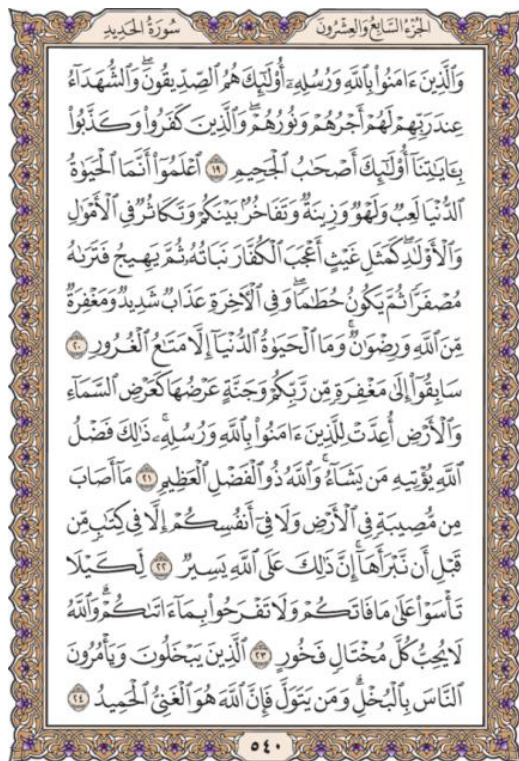 الجزء السابع والعشرون
سورة الحديد
وَالَّذِينَ ءَامَنُوا۟ بِاللَّهِ وَرُسُلِهِۦٓ أُو۟لَـٰٓئِكَ هُمُ الصِّدِّيقُونَ ۖ وَالشُّهَدَآءُ
عِندَ رَبِّهِمْ لَهُمْ أَجْرُهُمْ وَنُورُهُمْ ۖ وَالَّذِينَ كَفَرُوا۟ وَكَذَّبُوا۟
بِـَٔايَـٰتِنَآ أُو۟لَـٰٓئِكَ أَصْحَـٰبُ الْجَحِيمِ ١٩ اعْلَمُوٓا۟ أَنَّمَا الْحَيَوٰةُ
الدُّنْيَا لَعِبٌ وَلَهْوٌ وَزِينَةٌ وَتَفَاخُرٌۢ بَيْنَكُمْ وَتَكَاثُرٌ فِى الْأَمْوَٰلِ
وَالْأَوْلَـٰدِ ۖ كَمَثَلِ غَيْثٍ أَعْجَبَ الْكُفَّارَ نَبَاتُهُۥ ثُمَّ يَهِيجُ فَتَرَىٰهُ
مُصْفَرًّا ثُمَّ يَكُونُ حُطَـٰمًا ۖ وَفِى الْـَٔاخِرَةِ عَذَابٌ شَدِيدٌ وَمَغْفِرَةٌ
مِّنَ اللَّهِ وَرِضْوَٰنٌ ۚ وَمَا الْحَيَوٰةُ الدُّنْيَآ إِلَّا مَتَـٰعُ الْغُرُورِ ٢٠
سَابِقُوٓا۟ إِلَىٰ مَغْفِرَةٍ مِّن رَّبِّكُمْ وَجَنَّةٍ عَرْضُهَا كَعَرْضِ السَّمَآءِ
وَالْأَرْضِ أُعِدَّتْ لِلَّذِينَ ءَامَنُوا۟ بِاللَّهِ وَرُسُلِهِۦ ۚ ذَٰلِكَ فَضْلُ
اللَّهِ يُؤْتِيهِ مَن يَشَآءُ ۚ وَاللَّهُ ذُو الْفَضْلِ الْعَظِيمِ ٢١ مَآ أَصَابَ
مِن مُّصِيبَةٍ فِى الْأَرْضِ وَلَا فِىٓ أَنفُسِكُمْ إِلَّا فِى كِتَـٰبٍ مِّن
قَبْلِ أَن نَّبْرَأَهَآ ۚ إِنَّ ذَٰلِكَ عَلَى اللَّهِ يَسِيرٌ ٢٢ لِّكَيْلَا
تَأْسَوْا۟ عَلَىٰ مَا فَاتَكُمْ وَلَا تَفْرَحُوا۟ بِمَآ ءَاتَىٰكُمْ ۗ وَاللَّهُ
لَا يُحِبُّ كُلَّ مُخْتَالٍ فَخُورٍ ٢٣ الَّذِينَ يَبْخَلُونَ وَيَأْمُرُونَ
النَّاسَ بِالْبُخْلِ ۗ وَمَن يَتَوَلَّ فَإِنَّ اللَّهَ هُوَ الْغَنِىُّ الْحَمِيدُ ٢٤
٥٤٠